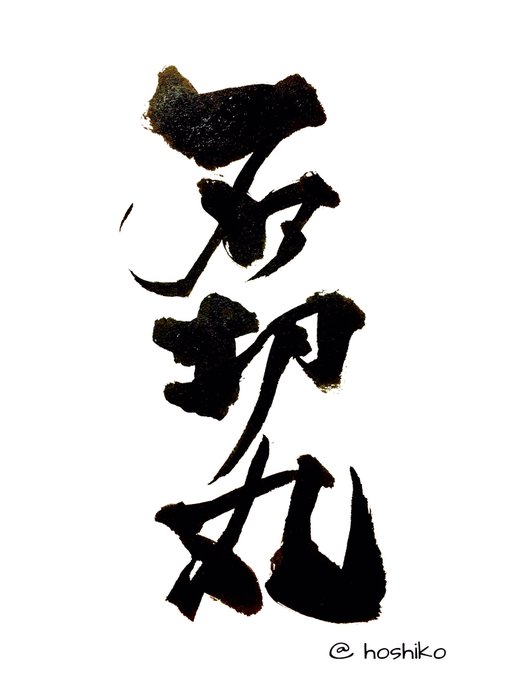 石切丸
@ hoshiko